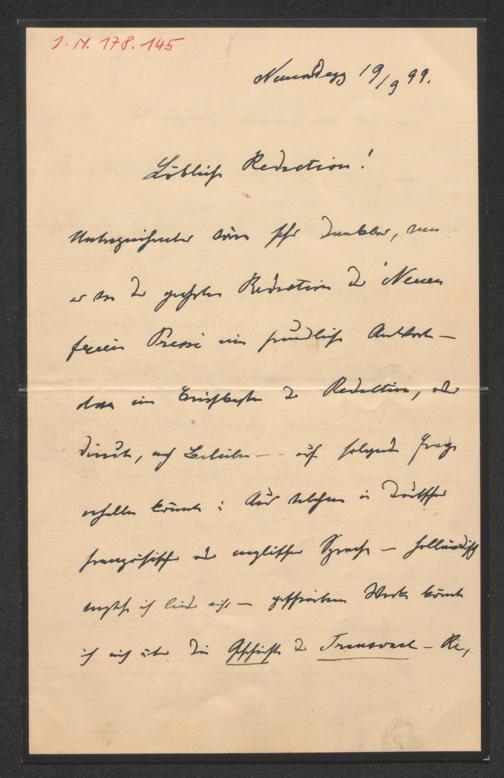 J. N. 178.145
19/9 99.
Löbliche Redaction!
Unterzeichneter wäre sehr dankbar, wenn
er von der geehrten Redaction der "Neuen
freien Presse" eine freundliche Antwort –
etwa im Briefkasten der Redaction, oder
direct, nach Belieben – auf folgende Frage
erhalten könnte: Aus welchem in deutscher
französischer oder englischer Sprache – holländisch
verstehe ich leider nicht – geschriebenen Werke könnte
ich mich über die Geschichte der Transvaal-Re,